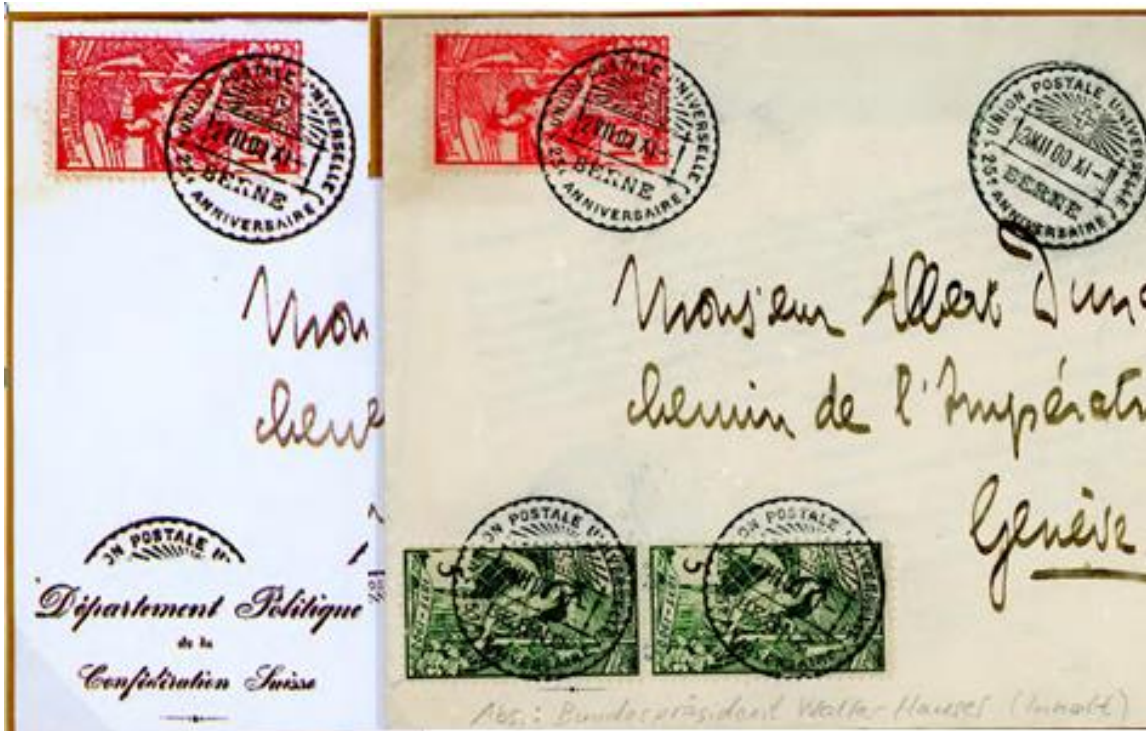 POSTALE UNIVERSELLE
BERNE
25e ANNIVERSAIRE
Mon
ON POSTALE
Département Politique
de la
Confédération Suisse
POSTALE UNIVERSELLE
BERNE
25e ANNIVERSAIRE
UNION POSTALE UNIVERSELLE
2XII 00 XI-
BERNE
25e ANNIVERSAIRE
Monsieur Albert Dun
chemin de l'Impérat
Genève
ON POSTALE
5
ON POSTALE
5
Abs.: Bundespräsident Walter Hauser (Inhalt)